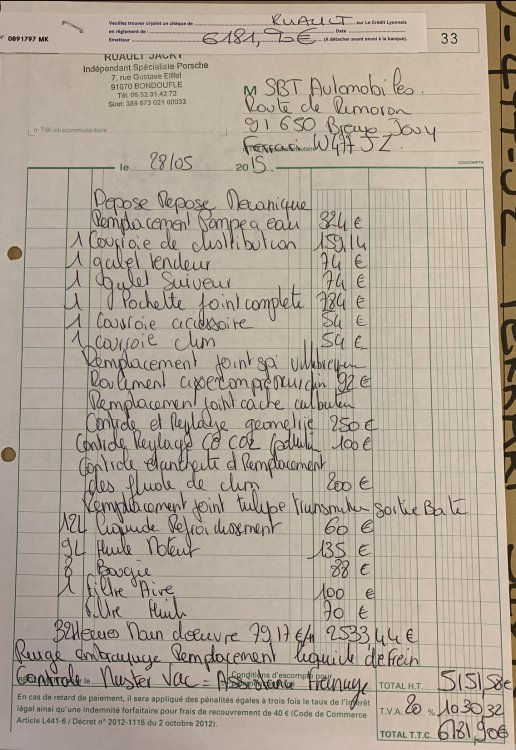 Veuillez trouver ci-joint un chèque de RUAULT sur Le Crédit Lyonnais
en règlement de Date
N° 0891797 MK Emetteur 6181,90€ (A détacher avant envoi à la banque).
33
RUAULT JACKY
Indépendant Spécialiste Porsche
7, rue Gustave Eiffel
91070 BONDOUFLE
Tél: 06.52.31.42.72
Siret: 389 673 021 00033
M SBT Automobiles.
Route de
91650 Jouy
Ferrari W477JZ.
n° TVA intracommunautaire
le 28/05 2015. EXACOMPTA
Depose Repose Mecanique
Remplacement Pompe a eau 324 €
1 Courroie de distribution 159,14
1 galet tendeur 74 €
1 galet Suiveur 74 €
1 Pochette joint complete 784 €
1 Courroie accessoire 54 €
1 courroie clim 54 €
Remplacement joint spi villebrequin
Roulement axe compresseur clim 92 €
Remplacement joint cache culbuteur
Controle et Reglage geometrie 250 €
Controle Reglage CO CO2 pollution 100 €
Controle etancheite d Remplacement
des fluide de clim 200 €
Remplacement joint tulipe transmission sortie Boite
12L liquide Refroidissement 60 €
9L Huile Moteur 135 €
8 Bougie 88 €
1 filtre Aire 100 €
filtre Huile 70 €
32Heures Main doeuvre 79,17 €/h 2533,44 €
Purge embrayage Remplacement liquide de frein
Controle Muster Vac = Assistance Freinage
Conditions d'escompte pour
le
En cas de retard de paiement, il sera appliqué des pénalités égales à trois fois le taux de l'intérêt
légal ainsi qu'une indemnité forfaitaire pour frais de recouvrement de 40 € (Code de Commerce
Article L441-6 / Décret n° 2012-1115 du 2 octobre 2012).
TOTAL H.T. 5151,58€
T.V.A. 20 % 1030,32
TOTAL T.T.C. 6181,90€